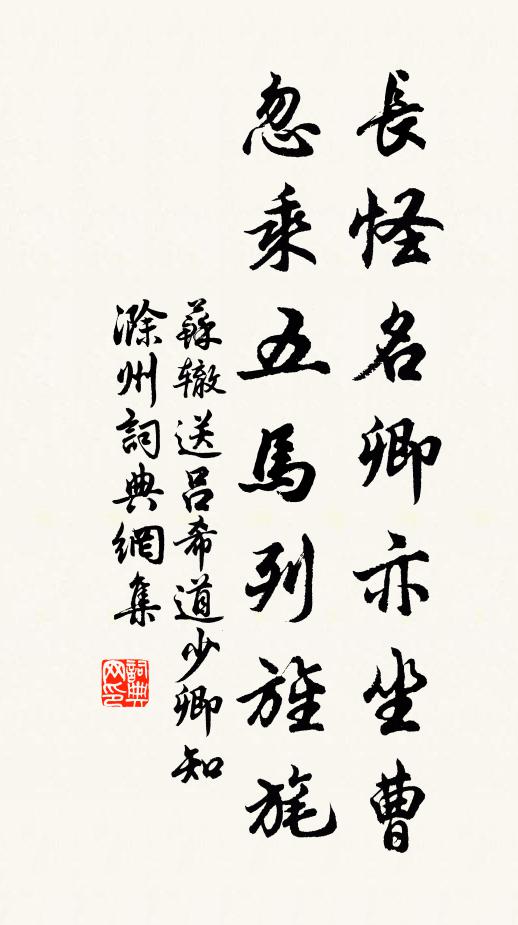 長怪名卿亦坐曹
忽乘五馬列旌旄
蘇辙送呂希道少卿知
滁州詞典網集
詞典网印